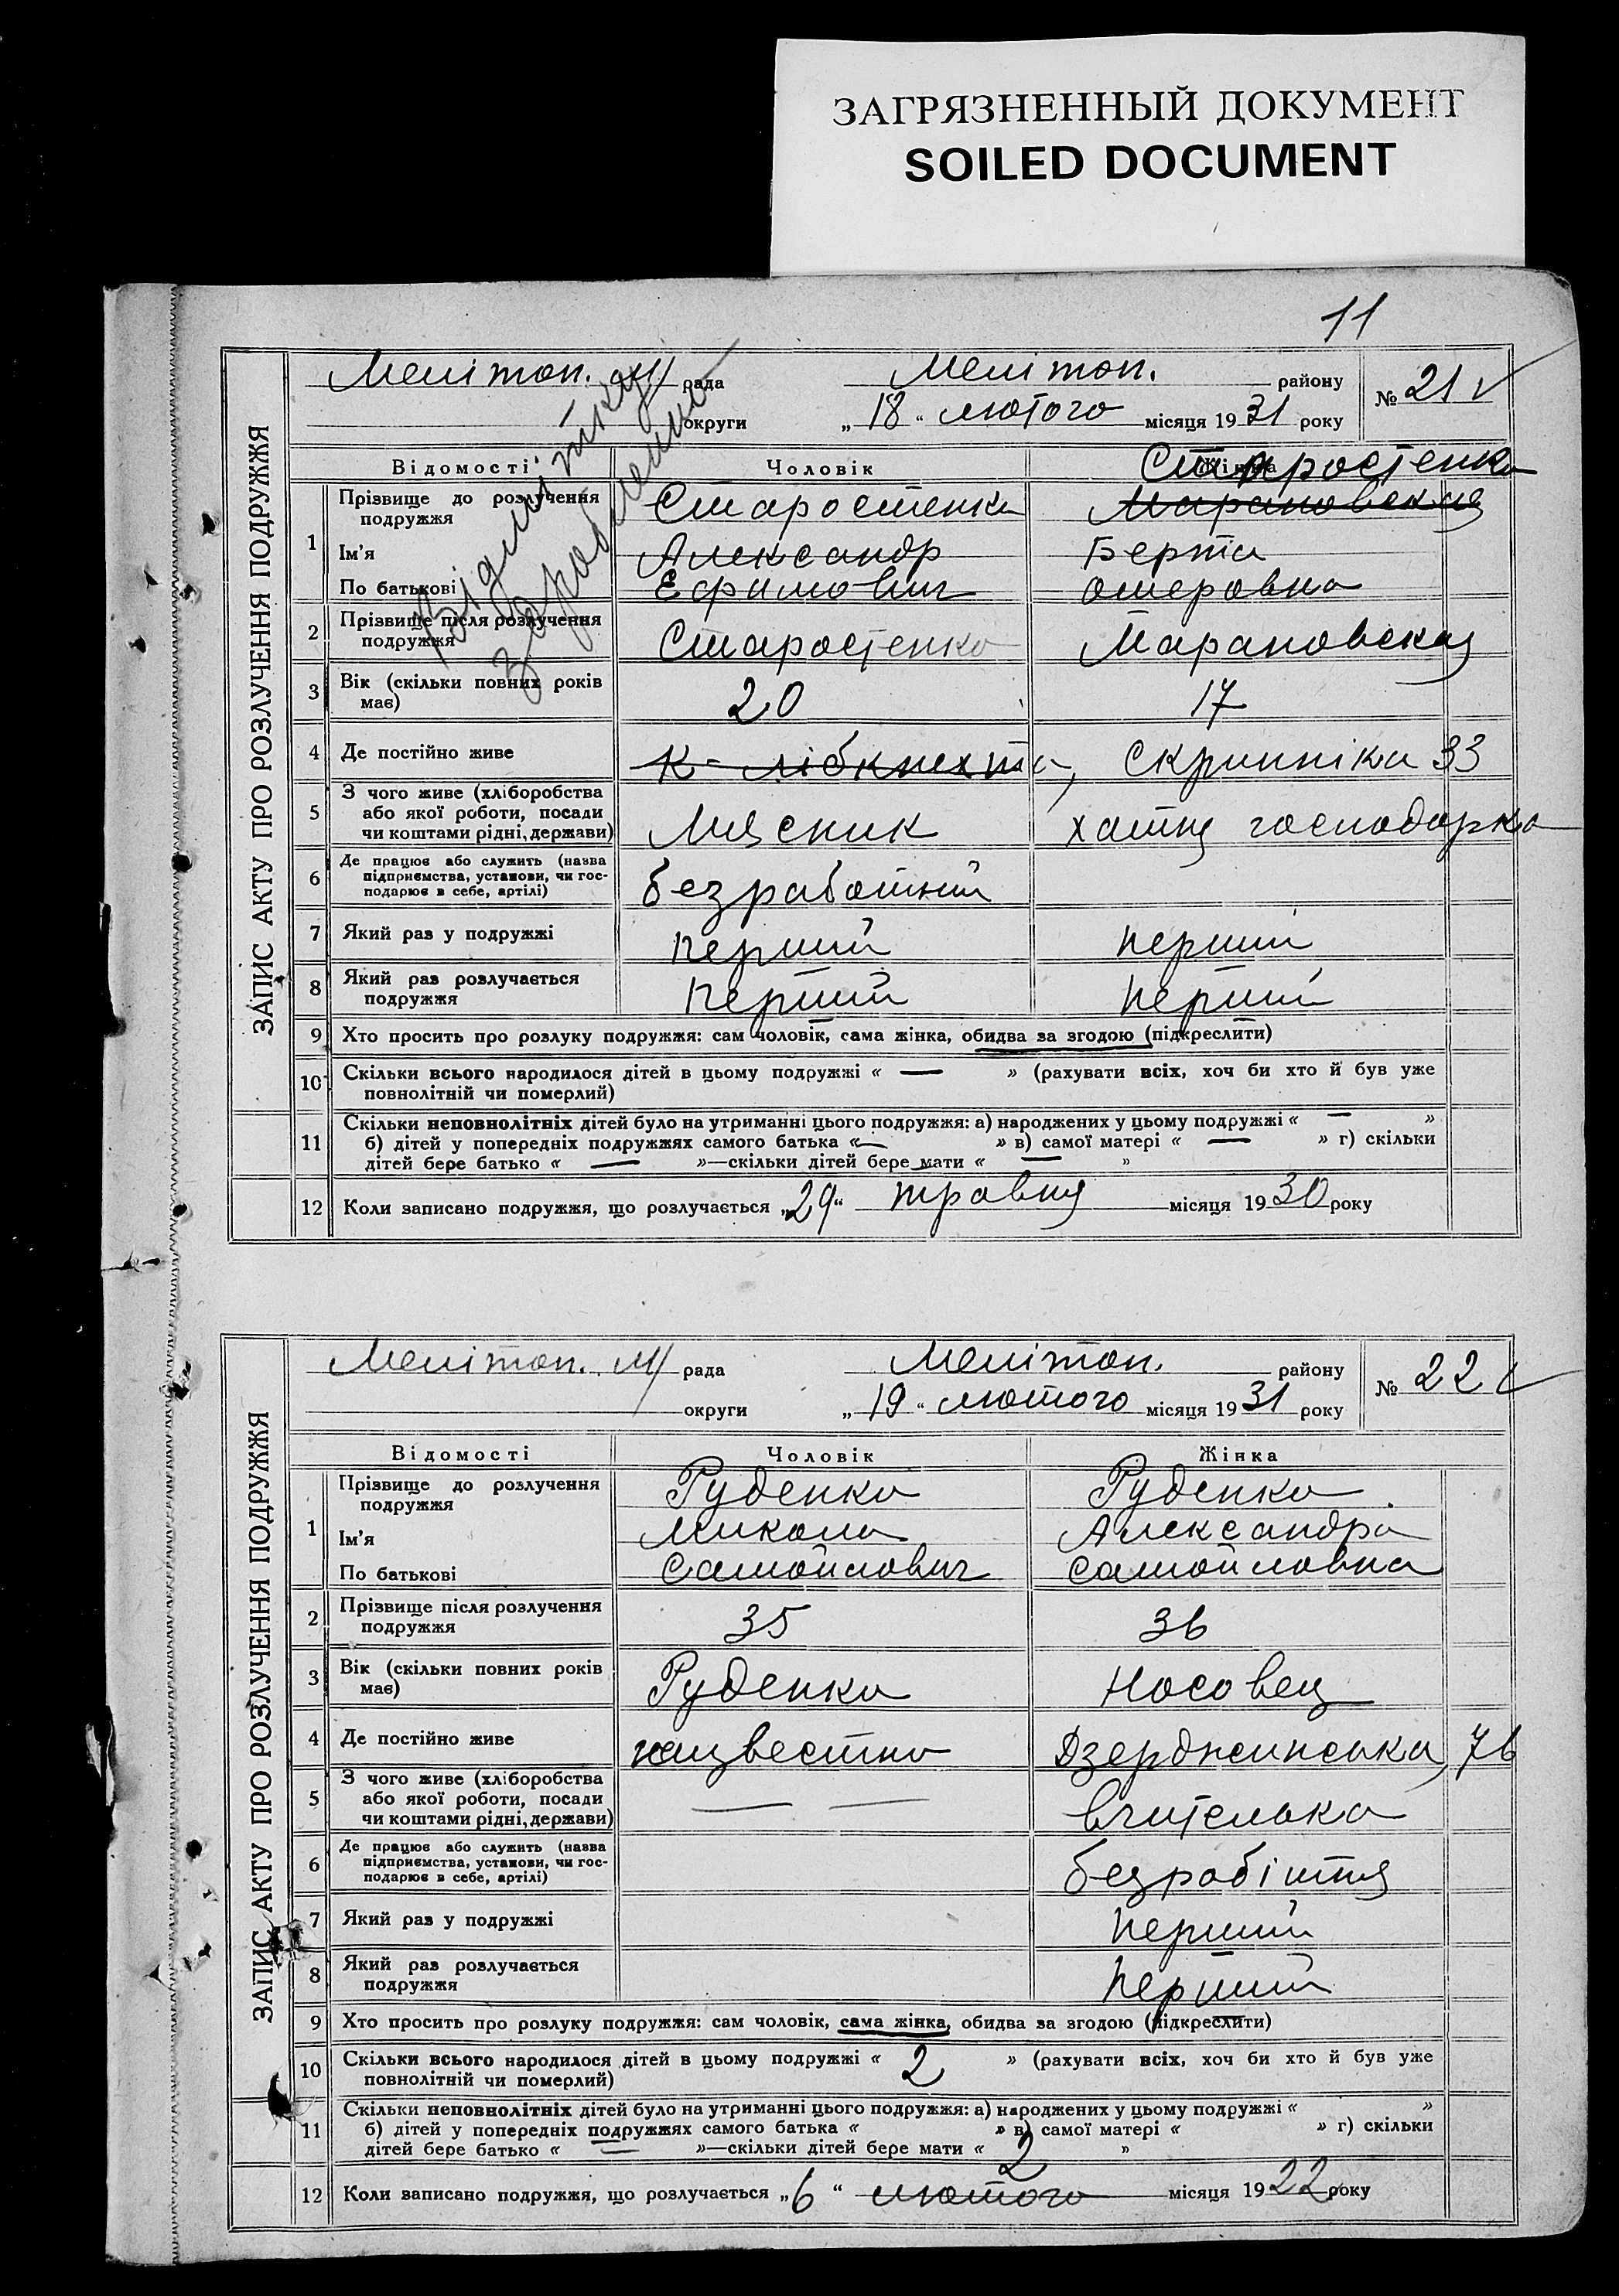 ЗАГРЯЗНЕННЫЙ ДОКУМЕНТ
SOILED DOCUMENT
11
ЗАПИС АКТУ ПРО РОЗЛУЧЕННЯ ПОДРУЖЖЯ
Мелітоп. м/ рада Мелітоп. району № 21
округи „18“ лютого місяця 1931 року
Відмітку зроблено
Відомості Чоловік Жінка
Старостенко
1 Прізвище до розлучення подружжя Старостенко Марановская
Ім'я Александр Берта
По батькові Ефимович Омеровна
2 Прізвище після розлучення
подружжя Старостенко Марановская
3 Вік (скільки повних років
має) 20 17
4 Де постійно живе К-Лібкнехта, Скрипніка 33
5 З чого живе (хліборобства
або якої роботи, посади
чи коштами рідні, держави) Мясник хатня господарка
6 Де працює або служить (назва
підприємства, установи, чи гос-
подарює в себе, артілі) безработний
7 Який раз у подружжі перший перший
8 Який раз розлучається
подружжя перший перший
9 Хто просить про розлуку подружжя: сам чоловік, сама жінка, обидва за згодою (підкреслити)
10 Скільки всього народилося дітей в цьому подружжі « — » (рахувати всіх, хоч би хто й був уже
повнолітній чи померлий)
11 Скільки неповнолітніх дітей було на утриманні цього подружжя: а) народжених у цьому подружжі « — »
б) дітей у попередніх подружжях самого батька « — » в) самої матері « — » г) скільки
дітей бере батько « — »—скільки дітей бере мати « — »
12 Коли записано подружжя, що розлучається „29“ травня місяця 1930 року
ЗАПИС АКТУ ПРО РОЗЛУЧЕННЯ ПОДРУЖЖЯ
Мелітоп. м/ рада Мелітоп. району № 22
округи „19“ лютого місяця 1931 року
Відомості Чоловік Жінка
1 Прізвище до розлучення
подружжя Руденко Руденко
Ім'я Микола Александра
По батькові Самойлович Самойловна
2 Прізвище після розлучення
подружжя 35 36
3 Вік (скільки повних років
має) Руденко Носовец
4 Де постійно живе неизвестно Дзержинська, 76
5 З чого живе (хліборобства
або якої роботи, посади
чи коштами рідні, держави) — — вчителька
6 Де працює або служить (назва
підприємства, установи, чи гос-
подарює в себе, артілі) безробіття
7 Який раз у подружжі перший
8 Який раз розлучається
подружжя перший
9 Хто просить про розлуку подружжя: сам чоловік, сама жінка, обидва за згодою (підкреслити)
10 Скільки всього народилося дітей в цьому подружжі « 2 » (рахувати всіх, хоч би хто й був уже
повнолітній чи померлий)
11 Скільки неповнолітніх дітей було на утриманні цього подружжя: а) народжених у цьому подружжі « »
б) дітей у попередніх подружжях самого батька « » в) самої матері « » г) скільки
дітей бере батько « — »—скільки дітей бере мати « 2 »
12 Коли записано подружжя, що розлучається „6“ лютого місяця 1922 року